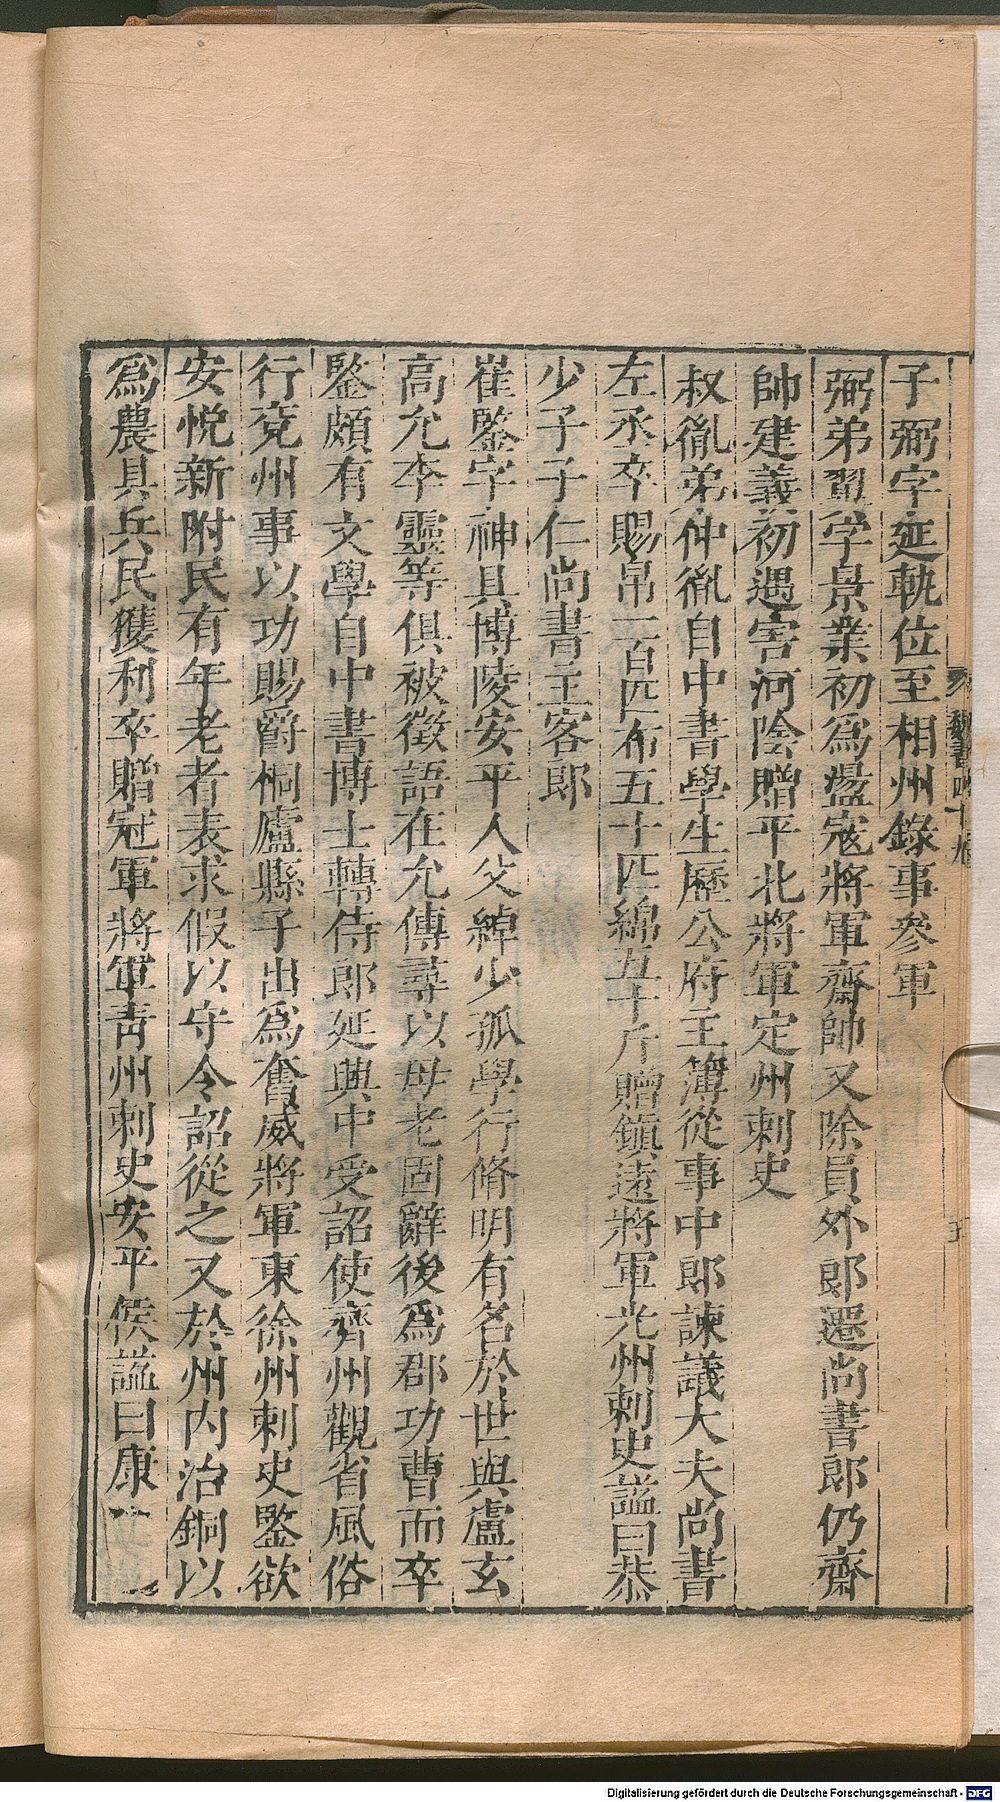 魏書四十九
五
子弼字延軌位至相州錄事參軍
弼弟翼字景業初爲盪寇將軍齋帥又除員外郎遷尚書郎仍齋
帥建義初遇害河陰贈平北將軍定州刺史
叔胤弟仲胤自中書學生歷公府主簿從事中郎諫議大夫尚書
左丞卒賜帛一百匹布五十匹綿五十斤贈鎮遠將軍光州刺史謚曰恭
少子子仁尚書主客郎
崔鑒字神具博陵安平人父綽少孤學行脩明有名於世與盧玄
高允李靈等俱被徵語在允傳尋以母老固辭後爲郡功曹而卒
鑒頗有文學自中書博士轉侍郎延興中受詔使齊州觀省風俗
行兗州事以功賜爵桐廬縣子出爲奮威將軍東徐州刺史鑒欲
安悅新附民有年老者表求假以守令詔從之又於州內治銅以
爲農具兵民獲利卒贈冠軍將軍青州刺史安平侯謚曰康
Digitalisierung gefördert durch die Deutsche Forschungsgemeinschaft - DFG